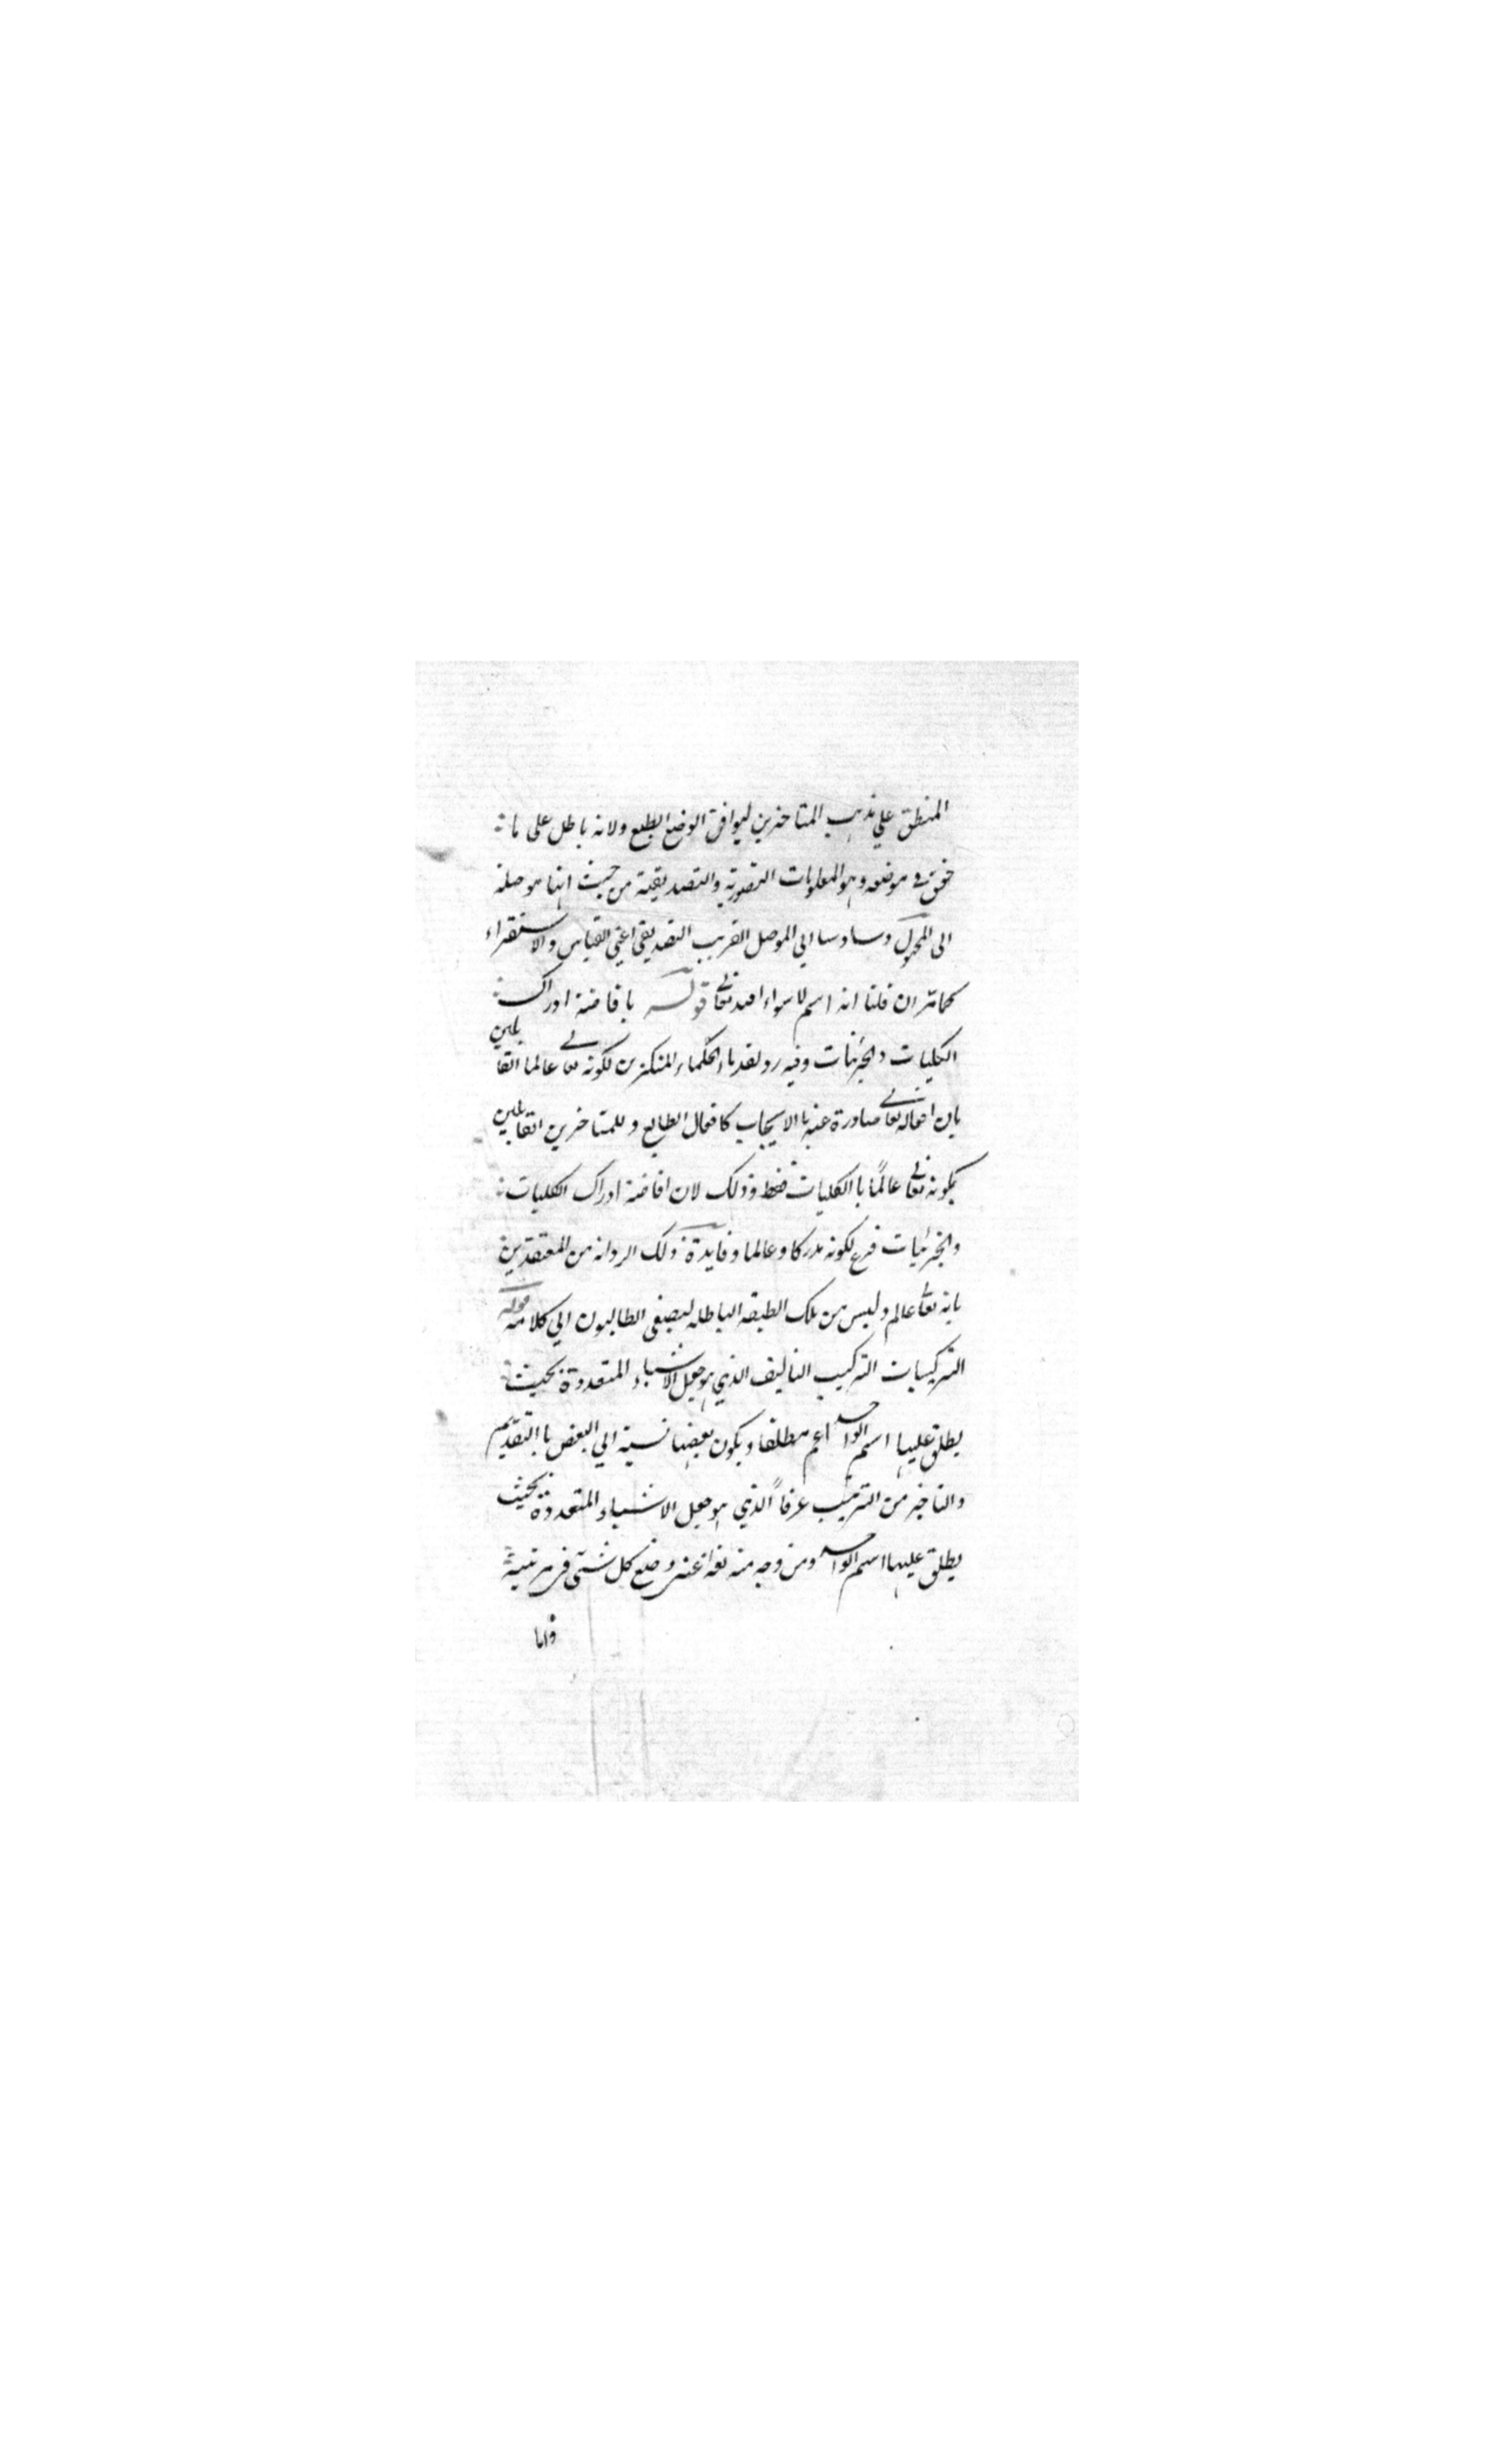 المنطق علي مذهب المتاخرين ليوافق الوضع الطبع ولانه باطل على ما
حقق في موضعه وهو المعلومات التصورية والتصديقية من حيث انها موصلة
الى المجهول وسادسا الي الموصل القريب التصديقي اعني القياس والاستقراء
كما مر ان قلنا انه اسم لاسواء الله تعالي قوله بافاضة ادراك
الكليات والجزئيات وفيه رد لقدماء الحكماء المنكرين لكونه تعالي عالما القايلين
بان افعاله تعالي صادرة عنه بالايجاب كافعال الطبايع وللمتاخرين القايلين
بكونه تعالي عالمًا باالكليات فقط وذلك لان افاضة ادراك الكليات
والجزئيات فرع لكونه مدركا وعالما وفايدة ذلك الرد انه من المعتقدين
بانه تعالي عالم وليس من تلك الطبقه الباطله ليصغي الطالبون الي كلامه قوله
التركيبات التركيب التاليف الذي هو جعل الاشياء المتعددة بحيث
يطلق عليها اسم الواحد اعم مطلقا ويكون لبعضها نسبة الي البعض باالتقديم
والتاخير من الترتيب عرفاً الذي هو جعل الاشياء المتعددة بحيث
يطلق عليها اسم الواحد ومن وجه منه لغة اعني وضع كل شئ في مرتبته
واما